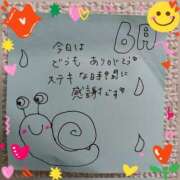 6月
今日は
どうも ありがとう♡
ステキな日時間に
感謝です♡